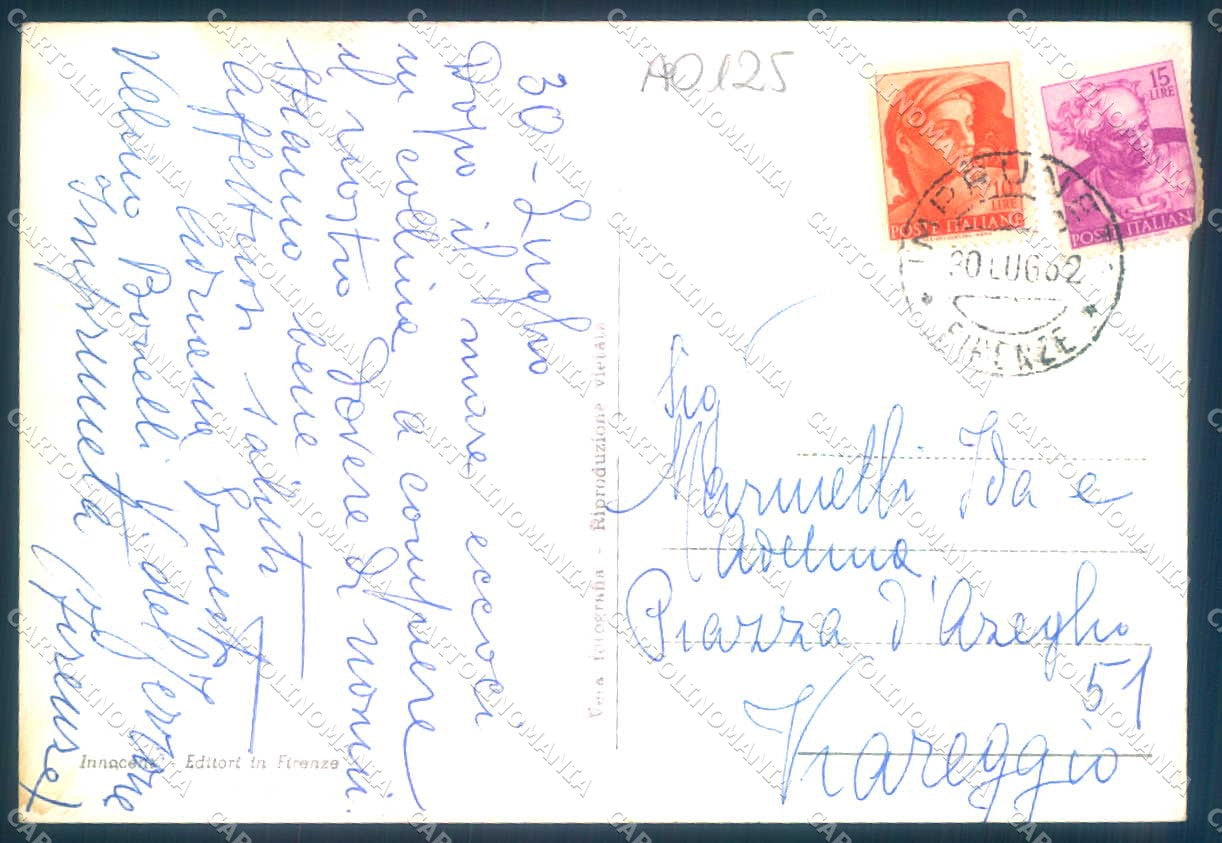 AO125
10
LIRE
POSTE ITALIANE
15
LIRE
POSTE ITALIANE
IMPRUNETA
30 LUG 62
* FIRENZE *
30 - Luglio
Dopo il mare eccoci
in collina a compiere
il nostro dovere di nonni.
Stanno bene
Affettuosi saluti
Adriena Ernesto
Villino Bonelli V. del Ferrone
Impruneta (Firenze)
Vera fotografia - Riproduzione vietata
Innocenti - Editori in Firenze
Sig
Marinelli Ida e
Adelina
Piazza d'Azeglio
51
Viareggio
CARTOLINOMANIA